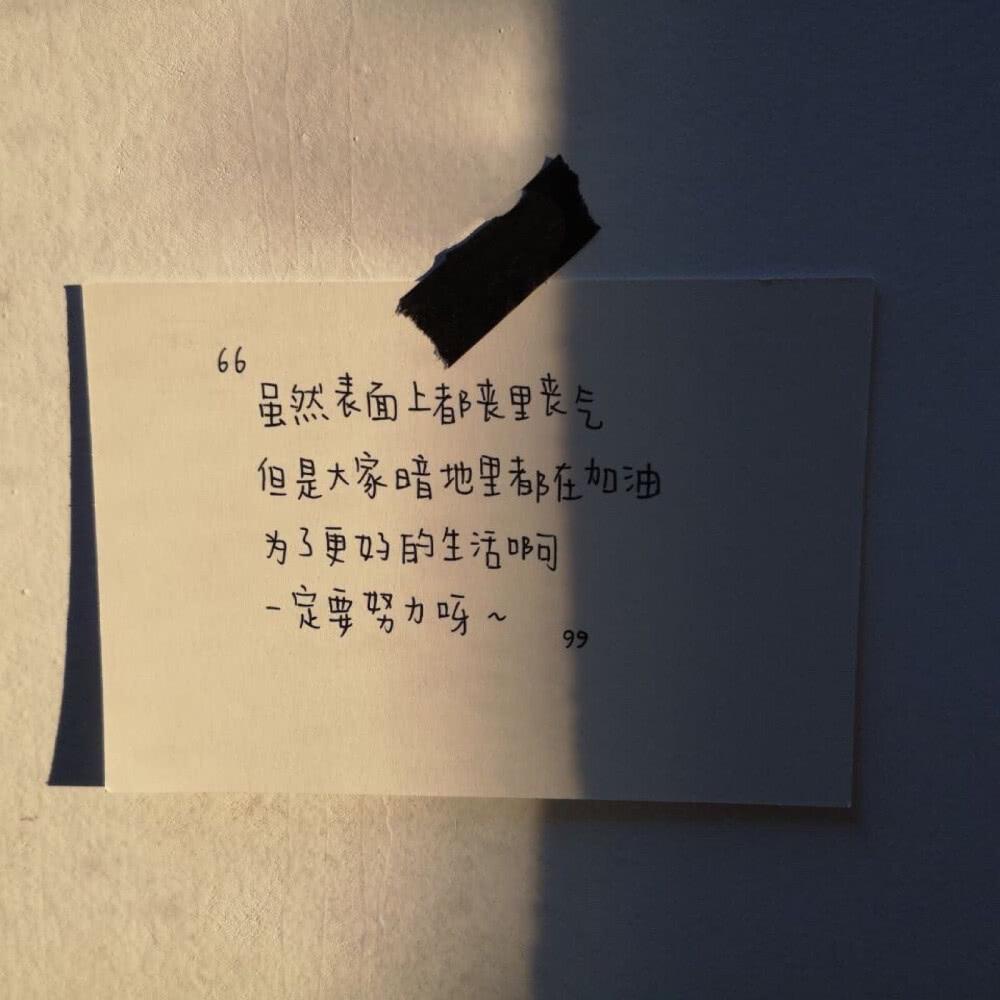 “
虽然表面上都丧里丧气
但是大家暗地里都在加油
为了更好的生活啊
一定要努力呀~
”